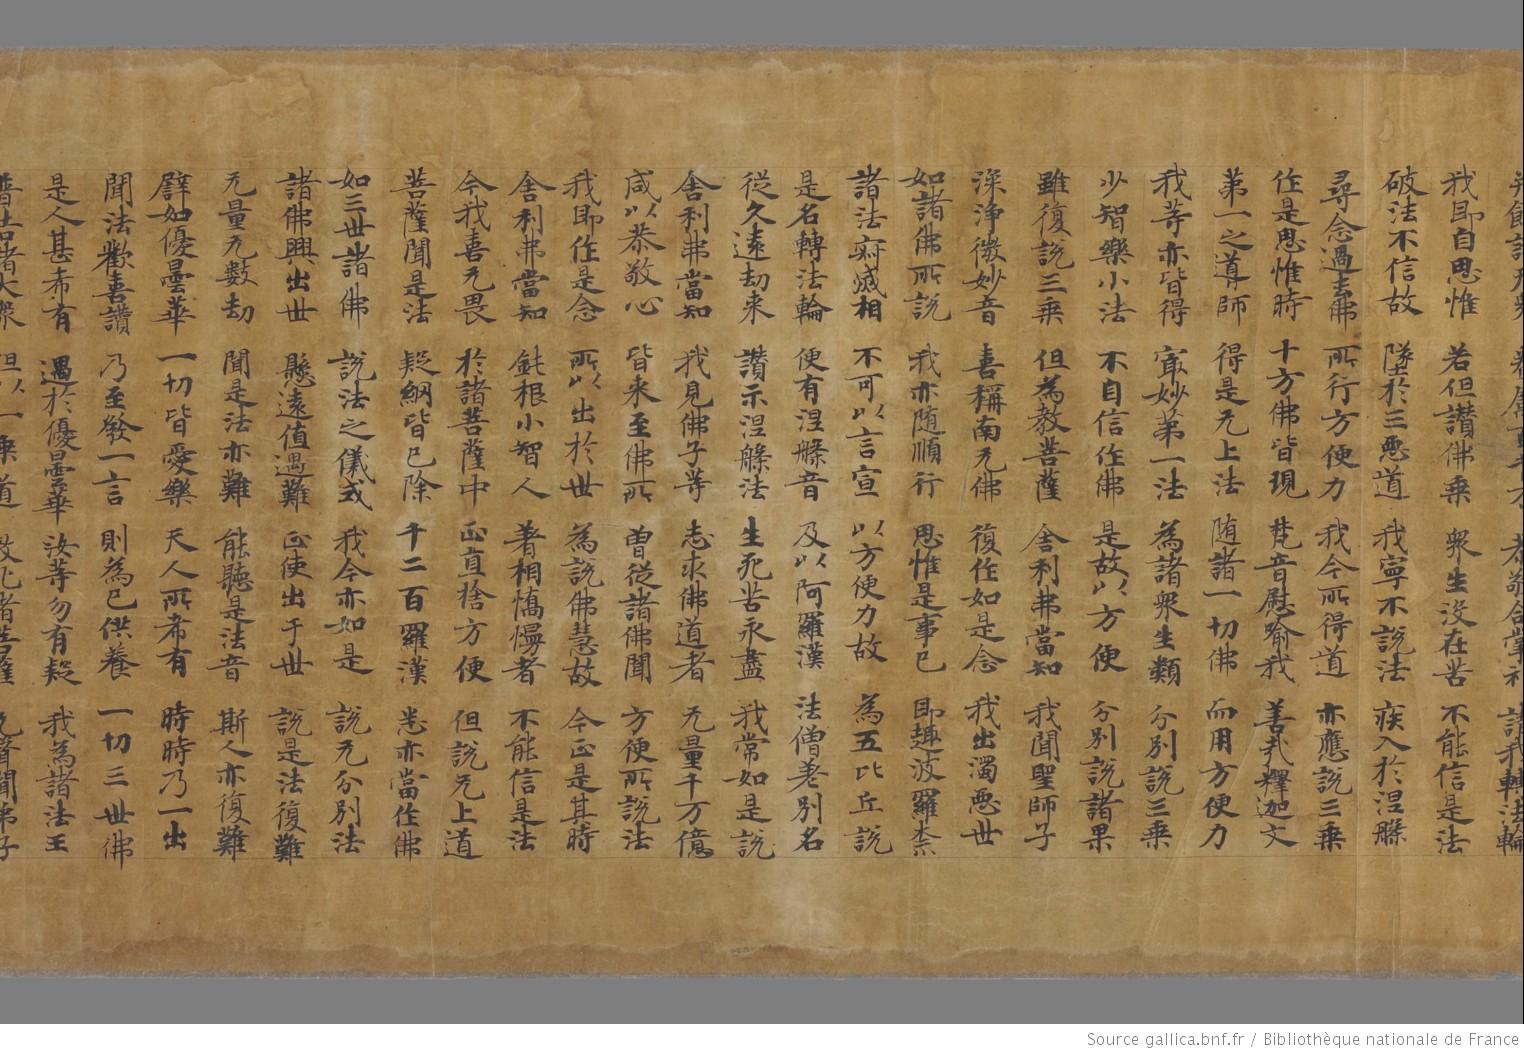 恭敬合掌礼 請我轉法輪
我即自思惟 若但讃佛乗 衆生没在苦 不能信是法
破法不信故 墜於三悪道 我寧不說法 疾入於涅槃
尋念過去佛 所行方便力 我今所得道 亦應說三乗
作是思惟時 十方佛皆現 梵音慰喻我 善哉釋迦文
苐一之導師 得是无上法 随諸一切佛 而用方便力
我等亦皆得 㝡妙苐一法 為諸衆生類 分別說三乗
少智樂小法 不自信作佛 是故以方便 分別說諸果
雖復說三乗 但為教菩薩 舍利弗當知 我聞聖師子
深浄微妙音 喜稱南无佛 復作如是念 我出濁悪世
如諸佛所說 我亦随順行 思惟是事已 即趣波羅柰
諸法寂滅相 不可以言宣 以方便力故 為五比丘說
是名轉法輪 便有涅槃音 及以阿羅漢 法僧差別名
從久遠劫来 讃示涅槃法 生死苦永盡 我常如是說
舍利弗當知 我見佛子等 志求佛道者 无量千万億
咸以恭敬心 皆来至佛所 曽從諸佛聞 方便所說法
我即作是念 所以出於世 為說佛慧故 今正是其時
舍利弗當知 鈍根小智人 著相憍慢者 不能信是法
今我喜无畏 於諸菩薩中 正直捨方便 但說无上道
菩薩聞是法 疑網皆已除 千二百羅漢 悉亦當作佛
如三世諸佛 說法之儀式 我今亦如是 說无分別法
諸佛興出世 懸遠值遇難 正使出于世 說是法復難
无量无数劫 聞是法亦難 能聽是法音 斯人亦復難
譬如優曇華 一切皆愛樂 天人所希有 時時乃一出
聞法歡喜讃 乃至發一言 則為已供養 一切三世佛
是人甚希有 過於優曇華 汝等勿有疑 我為諸法王
普告諸大衆 但以一乗道 教化諸菩薩 无聲聞弟子
Source gallica.bnf.fr / Bibliothèque nationale de France